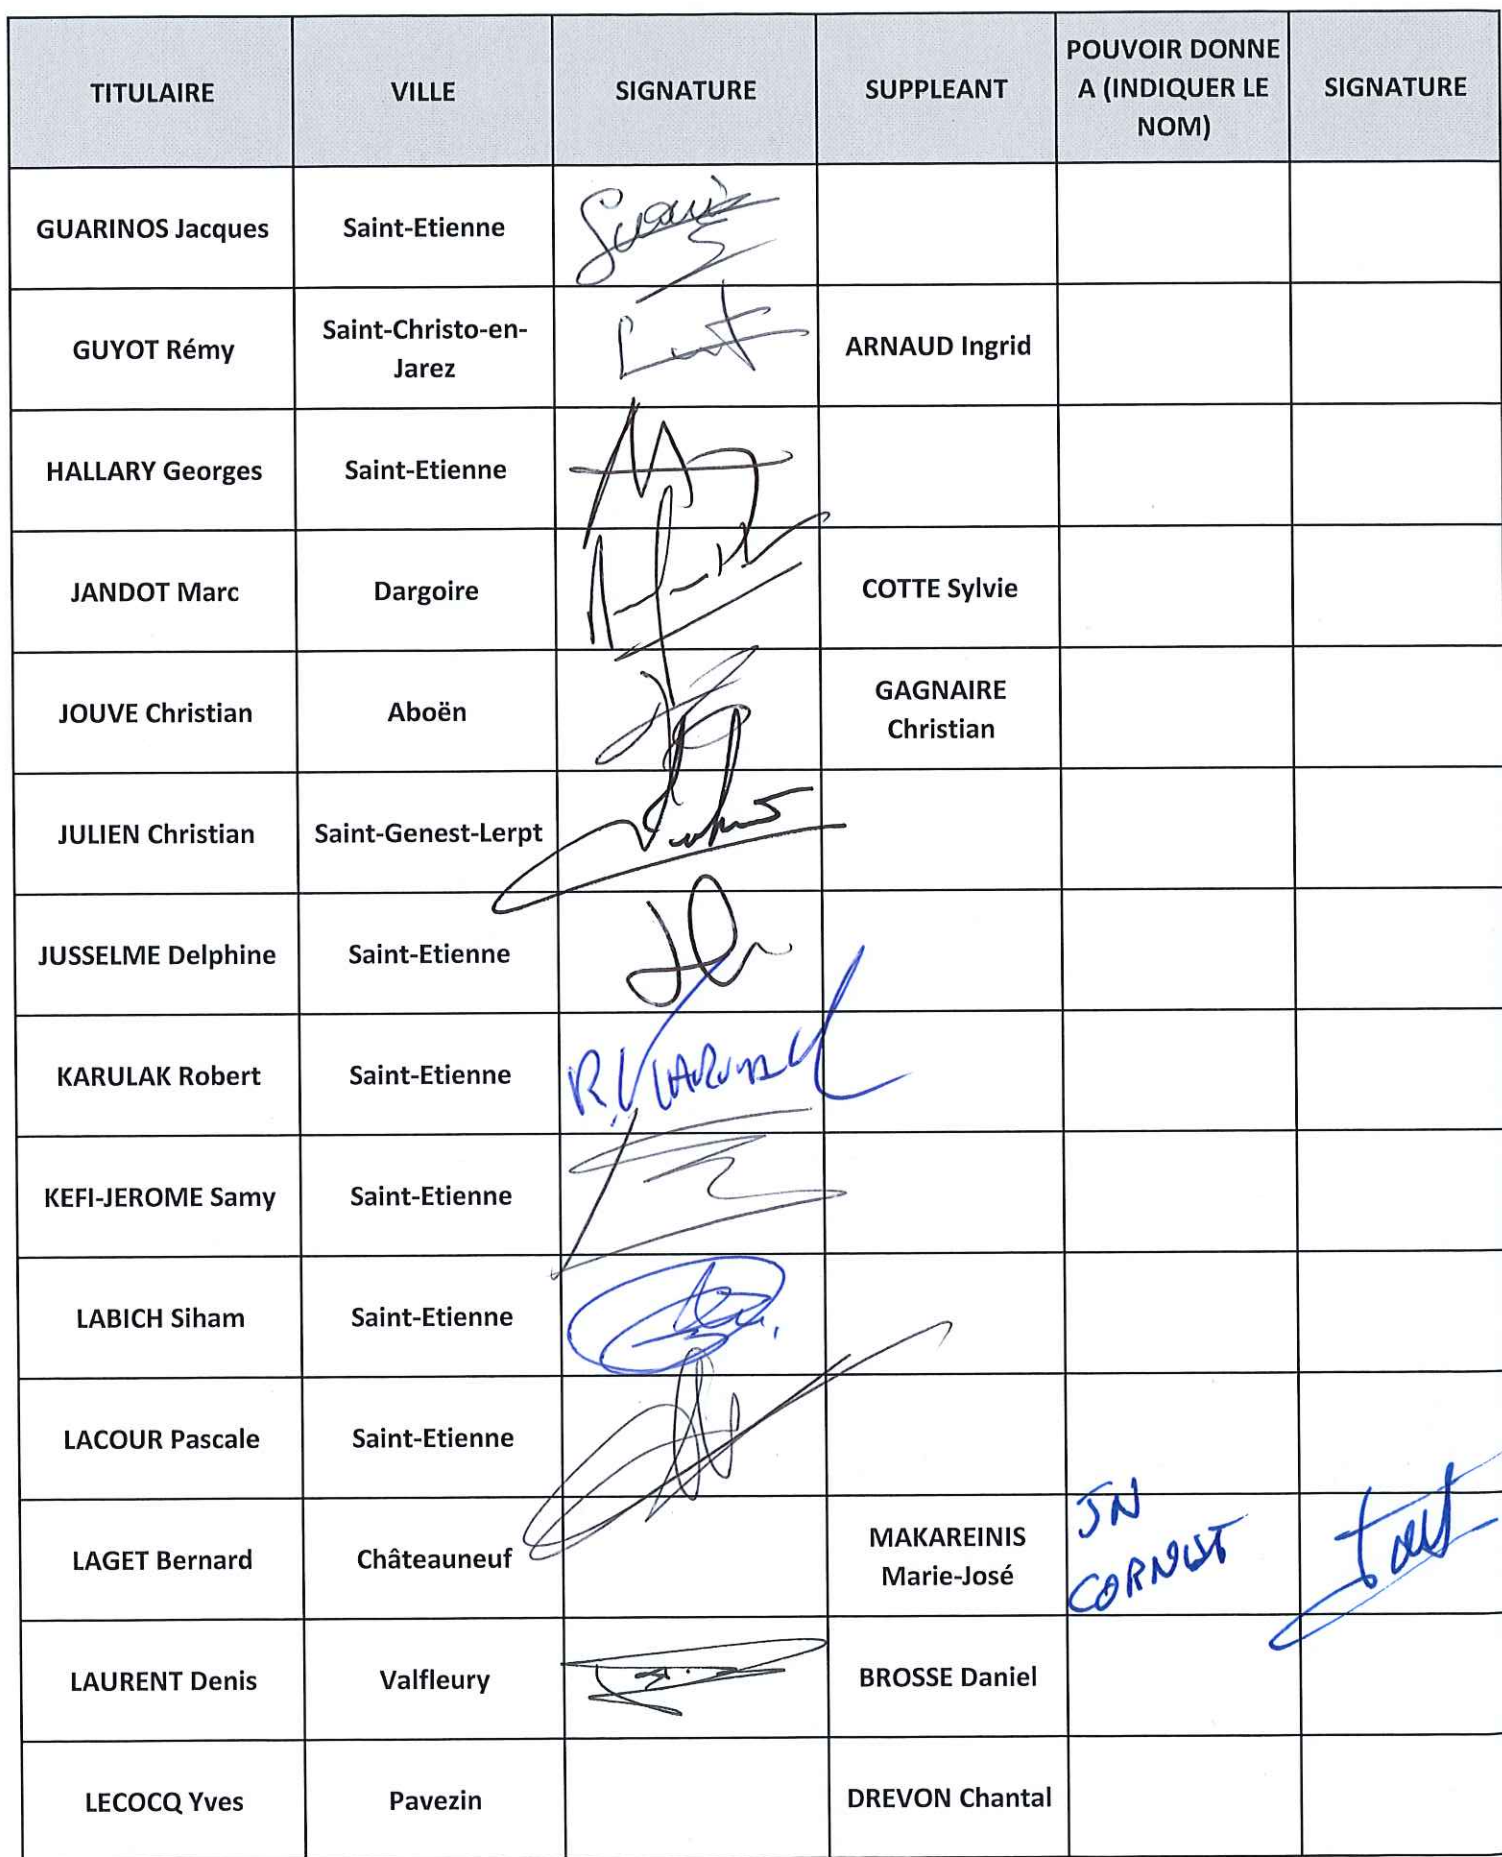 TITULAIRE
VILLE
SIGNATURE
SUPPLEANT
POUVOIR DONNE
A (INDIQUER LE
NOM)
SIGNATURE
GUARINOS Jacques
Saint-Etienne
GUYOT Rémy
Saint-Christo-en-
Jarez
ARNAUD Ingrid
HALLARY Georges
Saint-Etienne
JANDOT Marc
Dargoire
COTTE Sylvie
JOUVE Christian
Aboën
GAGNAIRE
Christian
JULIEN Christian
Saint-Genest-Lerpt
JUSSELME Delphine
Saint-Etienne
KARULAK Robert
Saint-Etienne
KEFI-JEROME Samy
Saint-Etienne
LABICH Siham
Saint-Etienne
LACOUR Pascale
Saint-Etienne
LAGET Bernard
Châteauneuf
MAKAREINIS
Marie-José
JN
CORNUT
LAURENT Denis
Valfleury
BROSSE Daniel
LECOCQ Yves
Pavezin
DREVON Chantal